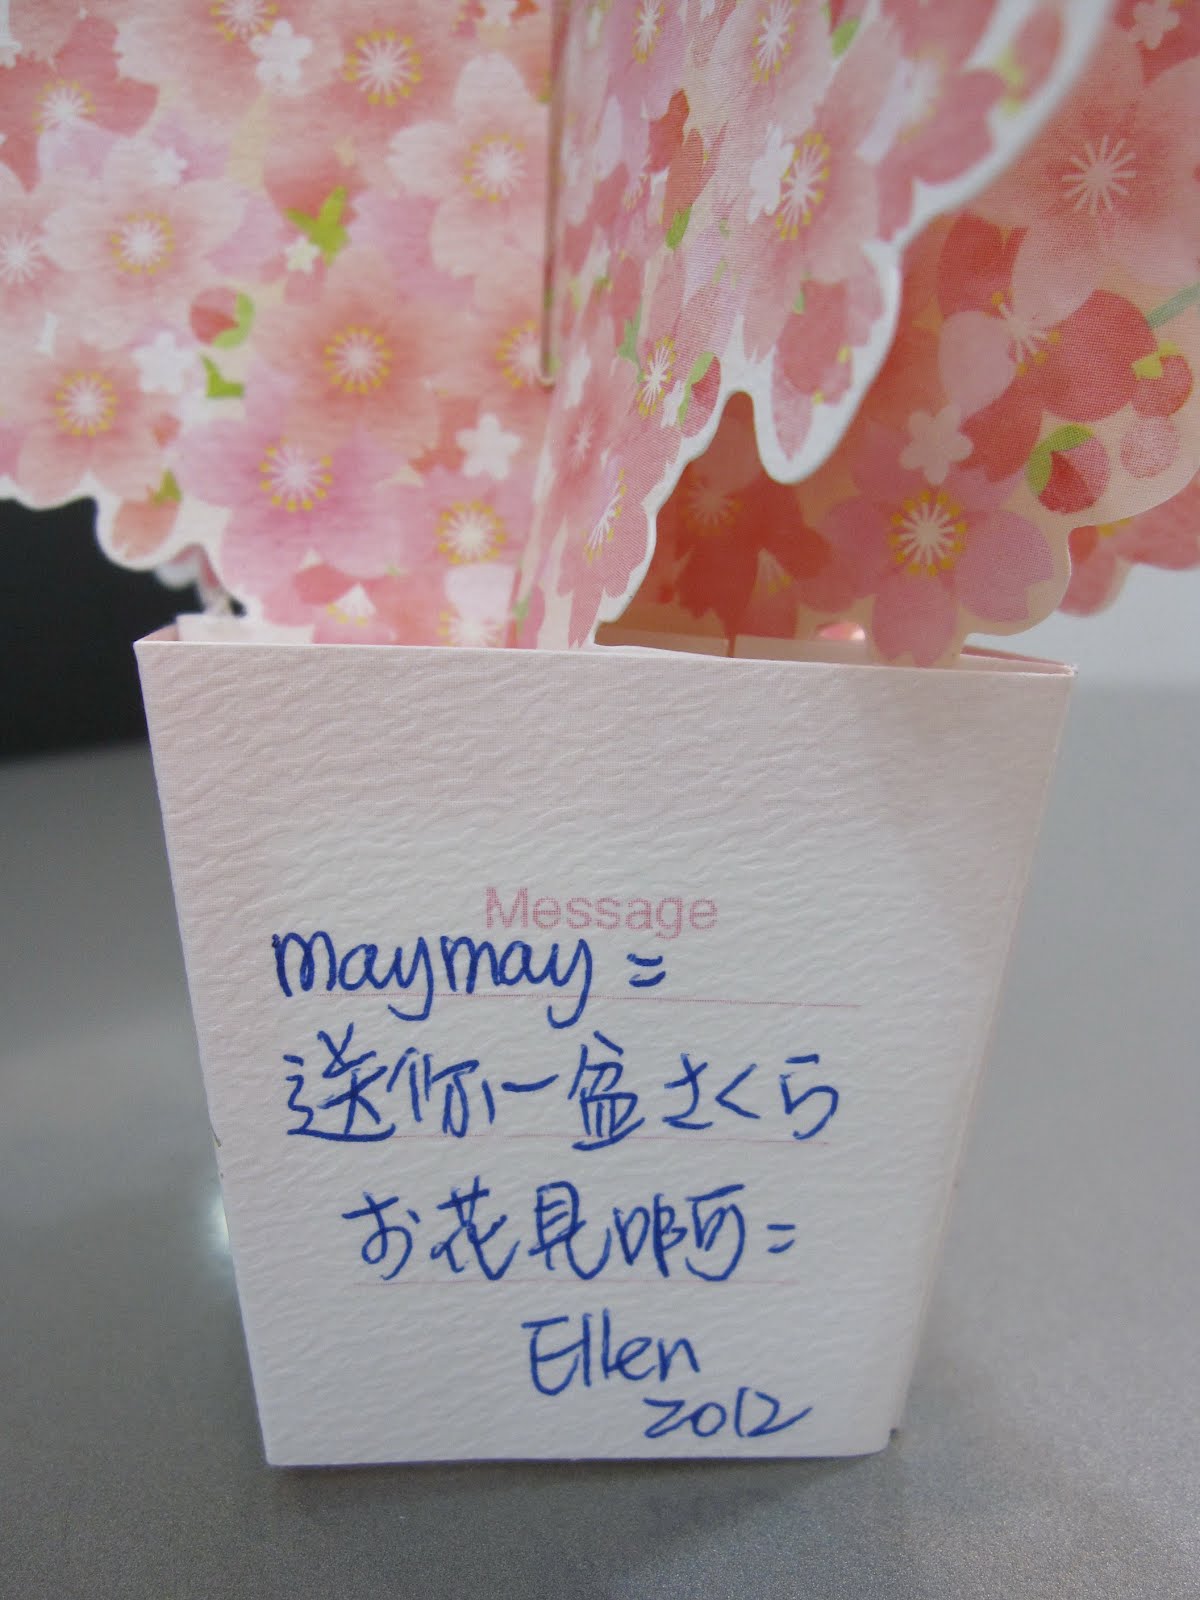 Message
maymay=
送你一盆さくら
お花見啊=
Ellen
2012